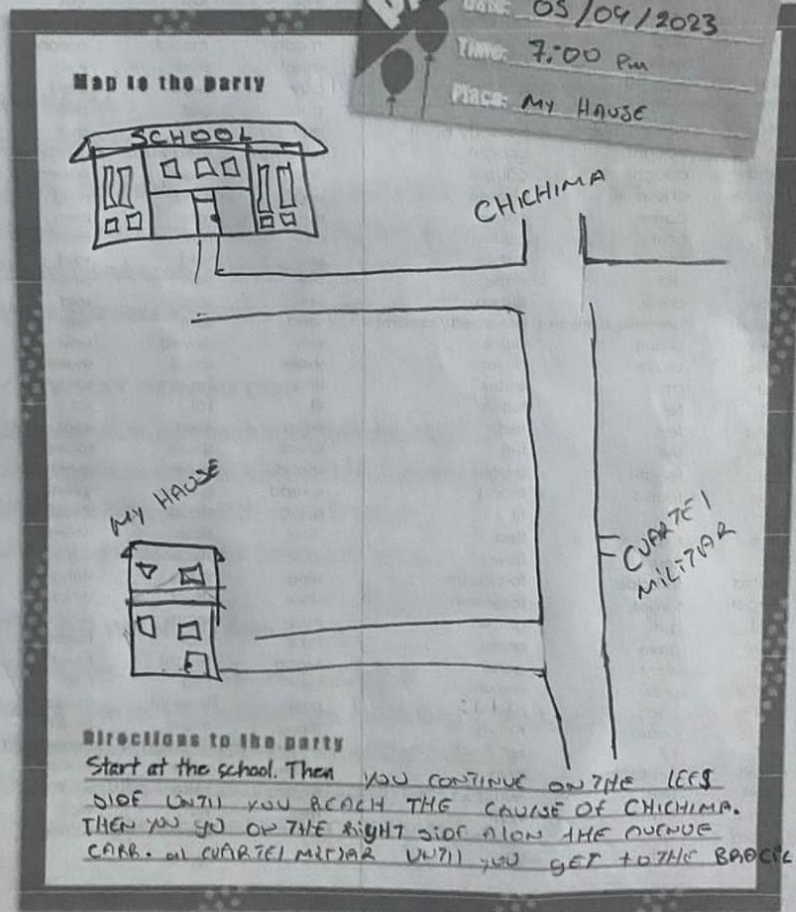 Date: 05/04/2023
Time: 7:00 Pm
Place: MY HAUSE
Map to the party
SCHOOL
CHICHIMA
MY HAUSE
CUARTEl
MiLiTAR
Directions to the party
Start at the school. Then YOU CONTINUE ON THE LEFS
SIDE UNTIl YOU REACH THE CAUISE OF CHICHIMA.
THEN YOU GO ON THE RiGHT SiDE AlON tHE AVENUE
CARR. al CUARTEl MILITAR UNTIl YOU GET to THE